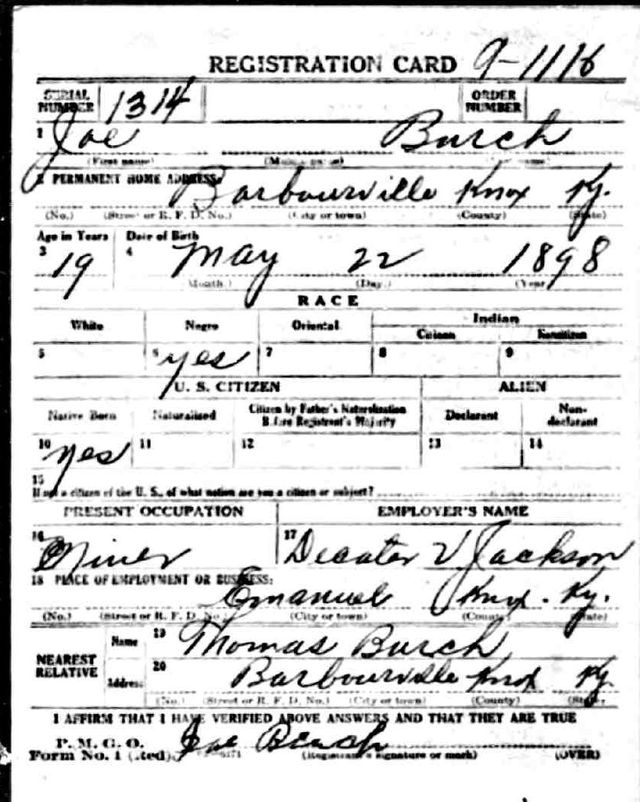 REGISTRATION CARD 9-1116
SERIAL NUMBER 1314 ORDER NUMBER
1 Joe Burch
(First name) (Middle name) (Last name)
2 PERMANENT HOME ADDRESS: Barbourville Knox Ky.
(No.) (Street or R. F. D. No.) (City or town) (County) (State)
Age in Years Date of Birth
3 19 4 May 22 1898
(Month.) (Day.) (Year)
RACE
White Negro Oriental Indian
Citizen Noncitizen
5 6 yes 7 8 9
U. S. CITIZEN ALIEN
Native Born Naturalized Citizen by Father's Naturalization Before Registrant's Majority Declarant Non-declarant
10 yes 11 12 13 14
15
If not a citizen of the U. S., of what nation are you a citizen or subject?
PRESENT OCCUPATION EMPLOYER'S NAME
16 Miner 17 Decater V Jackson
18 PLACE OF EMPLOYMENT OR BUSINESS: Emanuel Knox. Ky.
(No.) (Street or R. F. D. No.) (City or town) (County) (State)
NEAREST RELATIVE Name 19 Thomas Burch
Address 20 Barbourville Knox Ky
(No.) (Street or R. F. D. No.) (City or town) (County) (State)
I AFFIRM THAT I HAVE VERIFIED ABOVE ANSWERS AND THAT THEY ARE TRUE
P. M. G. O.
Form No. 1 (Red) Joe Burch
(Registrant's signature or mark) (OVER)